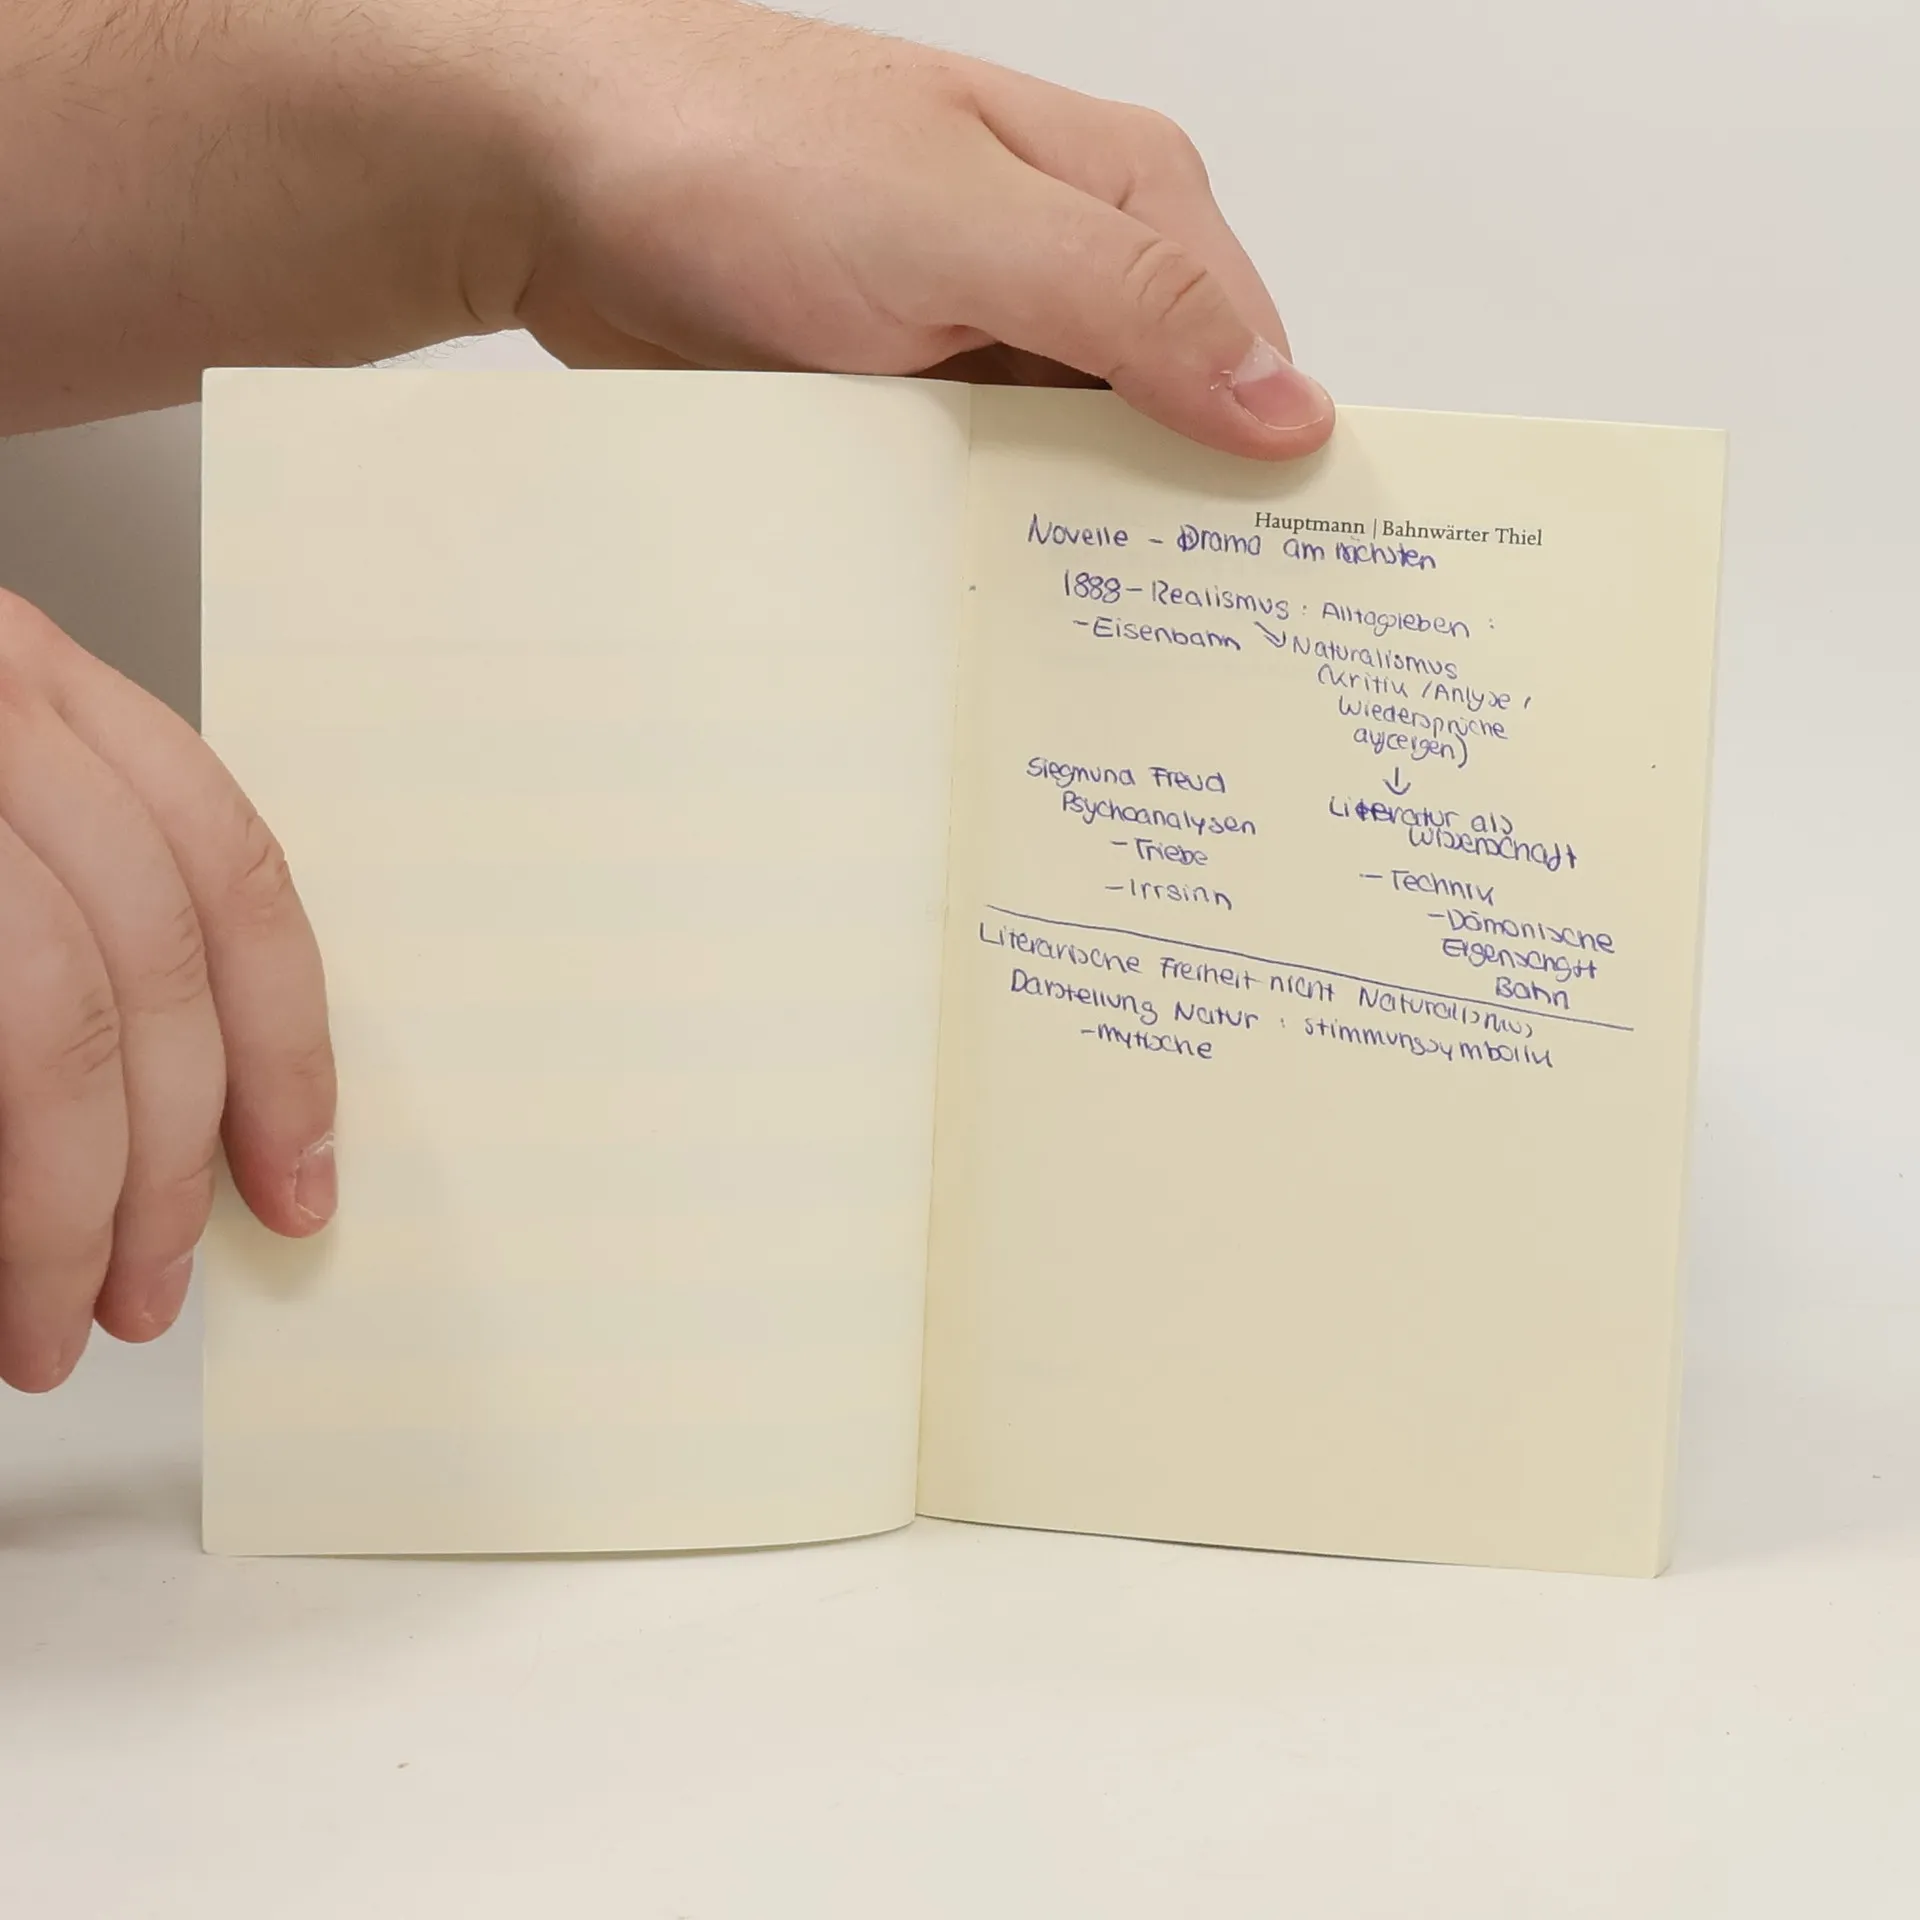 Hauptmann | Bahnwärter Thiel
Novelle - Drama am nächsten
1888 - Realismus : Alltagsleben :
- Eisenbahn ↘ Naturalismus
(Kritik / Anlyse /
Wiedersprüche
aufzeigen)
↓
Siegmund Freud
Psychoanalysen
- Triebe
- Irrsinn
Literatur als
Wissenschaft
- Technik
- Dämonische
Eigenschaft
Bahn
Literarische Freiheit nicht Naturalismus
Darstellung Natur : Stimmungssymbolik
- mytische